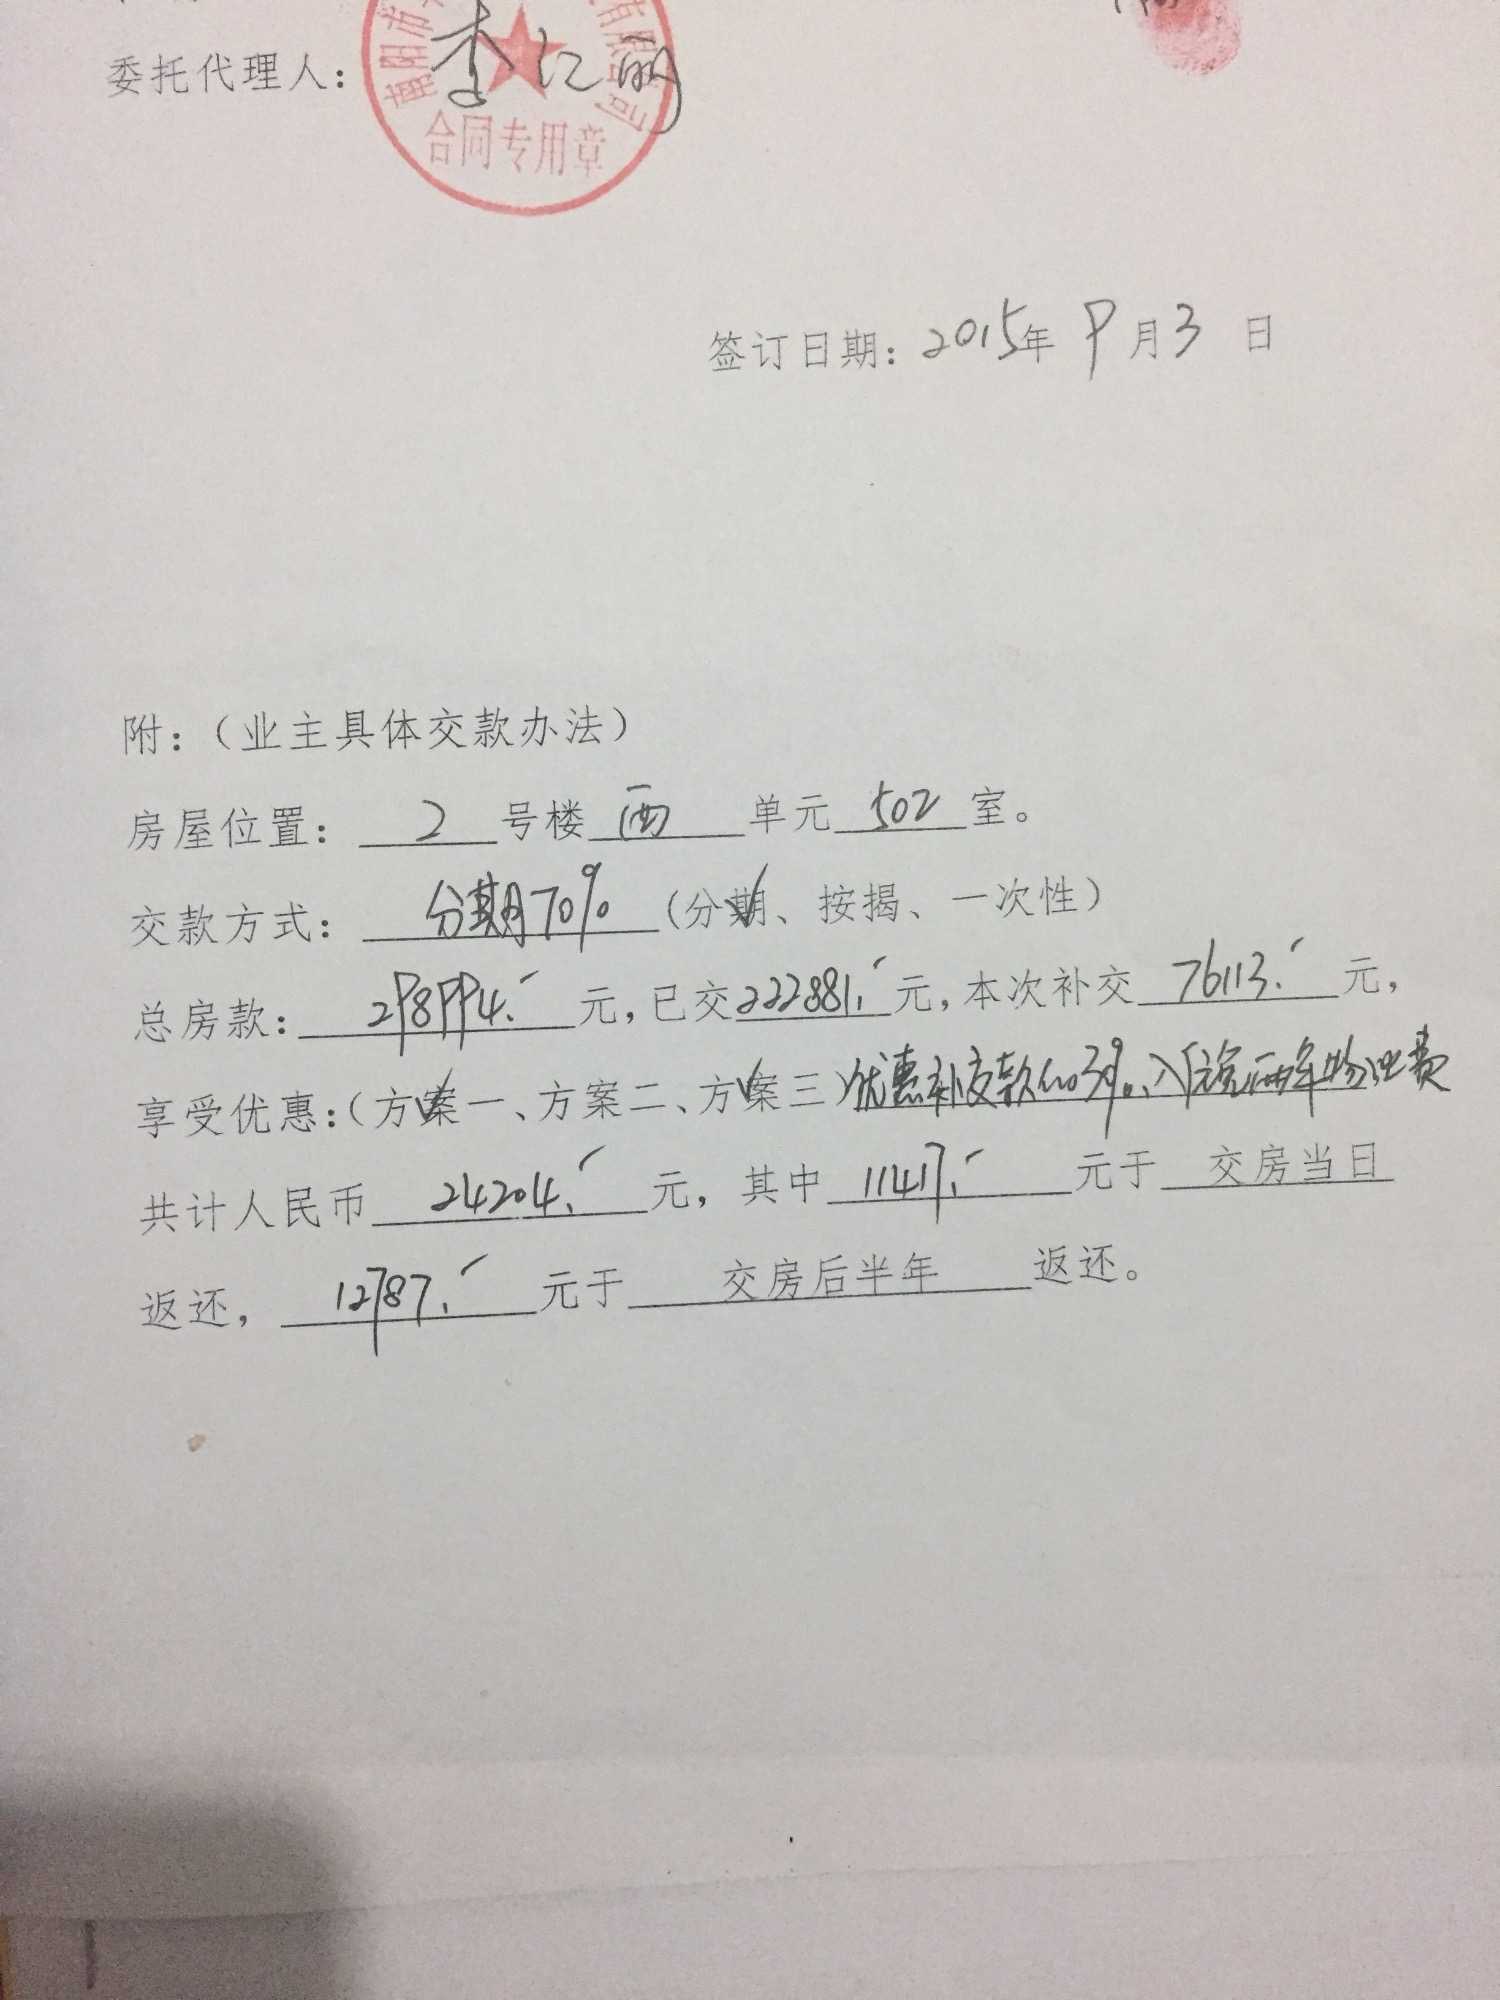 委托代理人：李江丽
南阳市 有限公司
合同专用章
签订日期：2015年 9月3 日
附：（业主具体交款办法）
房屋位置： 2 号楼 西 单元 502 室。
交款方式： 分期70% （分期、按揭、一次性）
总房款： 298994. 元，已交222881.元，本次补交 76113. 元，
享受优惠：（方案一、方案二、方案三）优惠补交款的3%、免两年物业费
共计人民币 24204. 元，其中 11417. 元于 交房当日
返还， 12787. 元于 交房后半年 返还。